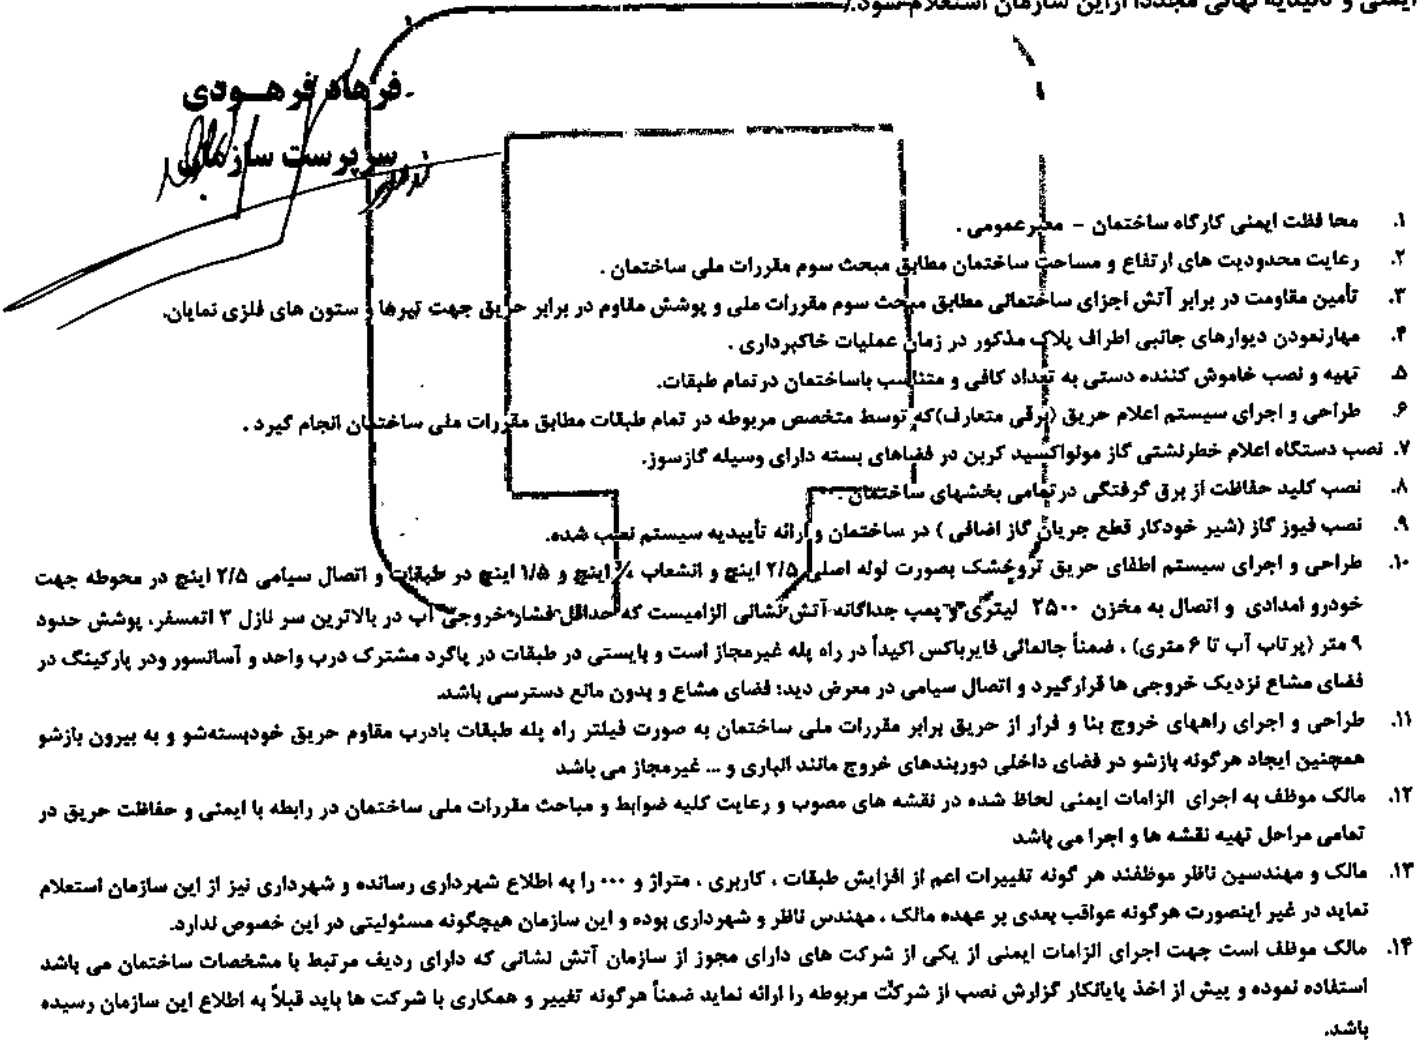 ایمنی و تائیدیه نهائی مجدداً ازاین سازمان استعلام شود./
فرهاد فرهــودی
سرپرست سازمان
۱. محا فظت ایمنی کارگاه ساختمان – معبرعمومی .
۲. رعایت محدودیت های ارتفاع و مساحت ساختمان مطابق مبحث سوم مقررات ملی ساختمان .
۳. تأمین مقاومت در برابر آتش اجزای ساختمانی مطابق مبحث سوم مقررات ملی و پوشش مقاوم در برابر حریق جهت تیرها و ستون های فلزی نمایان.
۴. مهارنمودن دیوارهای جانبی اطراف پلاک مذکور در زمان عملیات خاکبرداری .
۵. تهیه و نصب خاموش کننده دستی به تعداد کافی و متناسب باساختمان درتمام طبقات.
۶. طراحی و اجرای سیستم اعلام حریق (برقی متعارف)که توسط متخصص مربوطه در تمام طبقات مطابق مقررات ملی ساختمان انجام گیرد .
۷. نصب دستگاه اعلام خطرنشتی گاز مونواکسید کربن در فضاهای بسته دارای وسیله گازسوز.
۸. نصب کلید حفاظت از برق گرفتگی درتمامی بخشهای ساختمان .
۹. نصب فیوز گاز (شیر خودکار قطع جریان گاز اضافی ) در ساختمان و ارائه تأییدیه سیستم نصب شده.
۱۰. طراحی و اجرای سیستم اطفای حریق تروخشک بصورت لوله اصلی ۲/۵ اینچ و انشعاب ¾ اینچ و ۱/۵ اینچ در طبقات و اتصال سیامی ۲/۵ اینچ در محوطه جهت
خودرو امدادی و اتصال به مخزن ۲۵۰۰ لیتری و پمپ جداگانه آتش نشانی الزامیست که حداقل فشار خروجی آب در بالاترین سر نازل ۳ اتمسفر، پوشش حدود
۹ متر (پرتاب آب تا ۶ متری) ، ضمناً جانمائی فایرباکس اکیداً در راه پله غیرمجاز است و بایستی در طبقات در پاگرد مشترک درب واحد و آسانسور ودر پارکینگ در
فضای مشاع نزدیک خروجی ها قرارگیرد و اتصال سیامی در معرض دید؛ فضای مشاع و بدون مانع دسترسی باشد.
۱۱. طراحی و اجرای راههای خروج بنا و فرار از حریق برابر مقررات ملی ساختمان به صورت فیلتر راه پله طبقات بادرب مقاوم حریق خودبسته‌شو و به بیرون بازشو
همچنین ایجاد هرگونه بازشو در فضای داخلی دوربندهای خروج مانند انباری و ... غیرمجاز می باشد
۱۲. مالک موظف به اجرای الزامات ایمنی لحاظ شده در نقشه های مصوب و رعایت کلیه ضوابط و مباحث مقررات ملی ساختمان در رابطه با ایمنی و حفاظت حریق در
تمامی مراحل تهیه نقشه ها و اجرا می باشد
۱۳. مالک و مهندسین ناظر موظفند هر گونه تغییرات اعم از افزایش طبقات ، کاربری ، متراژ و ... را به اطلاع شهرداری رسانده و شهرداری نیز از این سازمان استعلام
نماید در غیر اینصورت هرگونه عواقب بعدی بر عهده مالک ، مهندس ناظر و شهرداری بوده و این سازمان هیچگونه مسئولیتی در این خصوص ندارد.
۱۴. مالک موظف است جهت اجرای الزامات ایمنی از یکی از شرکت های دارای مجوز از سازمان آتش نشانی که دارای ردیف مرتبط با مشخصات ساختمان می باشد
استفاده نموده و پیش از اخذ پایانکار گزارش نصب از شرکت مربوطه را ارائه نماید ضمناً هرگونه تغییر و همکاری با شرکت ها باید قبلاً به اطلاع این سازمان رسیده
باشد.